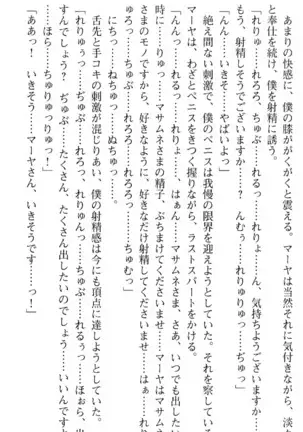 あまりの快感に、僕の膝ががくがくと震える。マーヤは当然それに気付きながら、淡々
と奉仕を続け、僕を射精に誘う。
「れりゅ、れろろ、ちゅぶ、れるっ……れりょ、ん、気持ちようございますか……
もう、射精しそうでございますか……? んむぅ……れりゅりゅっ……ぢゅっ」
「んんっ、いきそ……やばいよっ」
絶え間ない刺激で、僕のペニスは我慢の限界を迎えようとしていた。それを察している
マーヤは、わざとペニスをきつく握りながら、ラストスパートをかける。
「んんっ……れるっ……れりょ、はぁん……マサムネさま、さあ、いつでも出したい
時に……りゅっ……マサムネさまの精子、ぶちまけてくださいませ……マーヤはマサムネ
さまのモノですから、好きなように、好きなだけ射精してくださいませ……はぁ……れり
ゅろっ……ちゅぶっ……れろろっ……ちゅむっ」
にちっ……ねちゅっ……ぬちゅっ……。
舌先と手コキの刺激が混じりあい、僕の射精感は今にも頂点に達しようとしていた。
「れりゅうっ……ちゅぶ、れろっ、れりゅんっ……ちゅぶ……れるぅっ……ほぉら、出
すんでしょう? ぢゅぶ……たくさん、たくさん出したいのでしょう……いいんですよ
……ほら……りゅちゅりゅりゅっ!」
「ああっ! いきそう……マーヤさん、いきそうです……っ!」